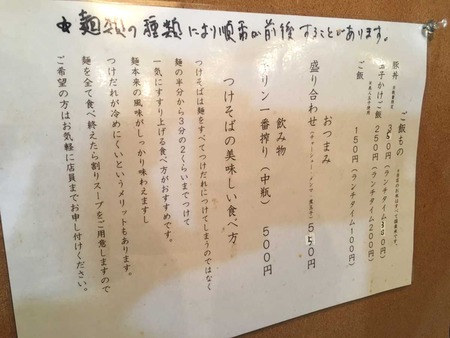 ※麺類の種類により順番が前後することがあります。
ご飯もの
豚丼
350円(ランチタイム300円)
玉子かけご飯
250円(ランチタイム200円)
ご飯
150円(ランチタイム100円)
おつまみ
盛り合わせ(チャーシュー・メンマ・煮玉子)550円
飲み物
キリン一番搾り(中瓶)500円
つけそばの美味しい食べ方
つけそばは麺をすべてつけだれにつけてしまうのではなく
麺の半分から3分の2くらいまでつけて
一気にすすり上げる食べ方がおすすめです。
麺本来の風味がしっかり味わえますし
つけだれが冷めにくいというメリットもあります。
麺を全て食べ終えたら割りスープをご用意しますので
ご希望の方はお気軽に店員までお申し付けください。